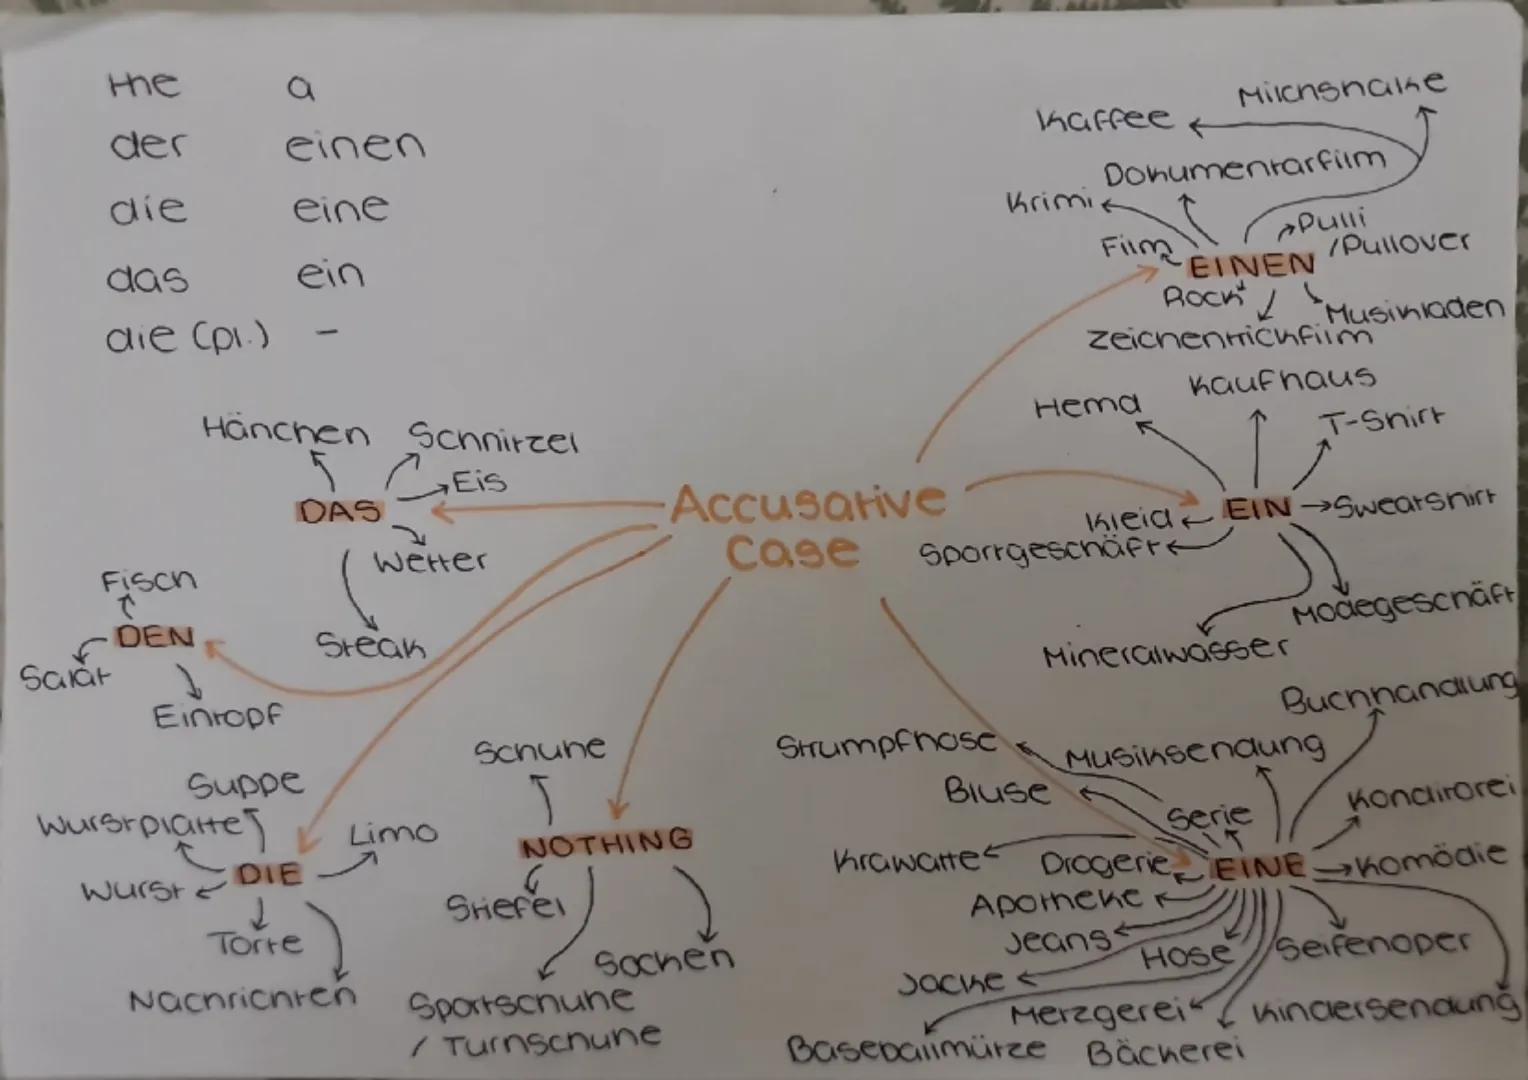 the a
der einen
die eine
das ein
die (pl.) -
Accusative
Case
EINEN
Kaffee
Milchshake
Dokumentarfilm
Krimi
Film
Pulli
/Pullover
Rock
Musikladen
Zeichentrickfilm
EIN
Hemd
Kaufhaus
T-Shirt
Sweatshirt
Kleid
Sportgeschäft
Modegeschäft
Mineralwasser
EINE
Buchhandlung
Strumpfhose
Musiksendung
Bluse
Serie
Konditorei
Krawatte
Drogerie
Komödie
Apotheke
Jeans
Hose
Seifenoper
Jacke
Metzgerei
Kindersendung
Baseballmütze
Bäckerei
NOTHING
Schuhe
Stiefel
Socken
Sportschuhe
/ Turnschuhe
DIE
Suppe
Wurstplatte
Limo
Wurst
Torte
Nachrichten
DEN
Fisch
Salat
Eintopf
DAS
Hänchen
Schnitzel
Eis
Wetter
Steak